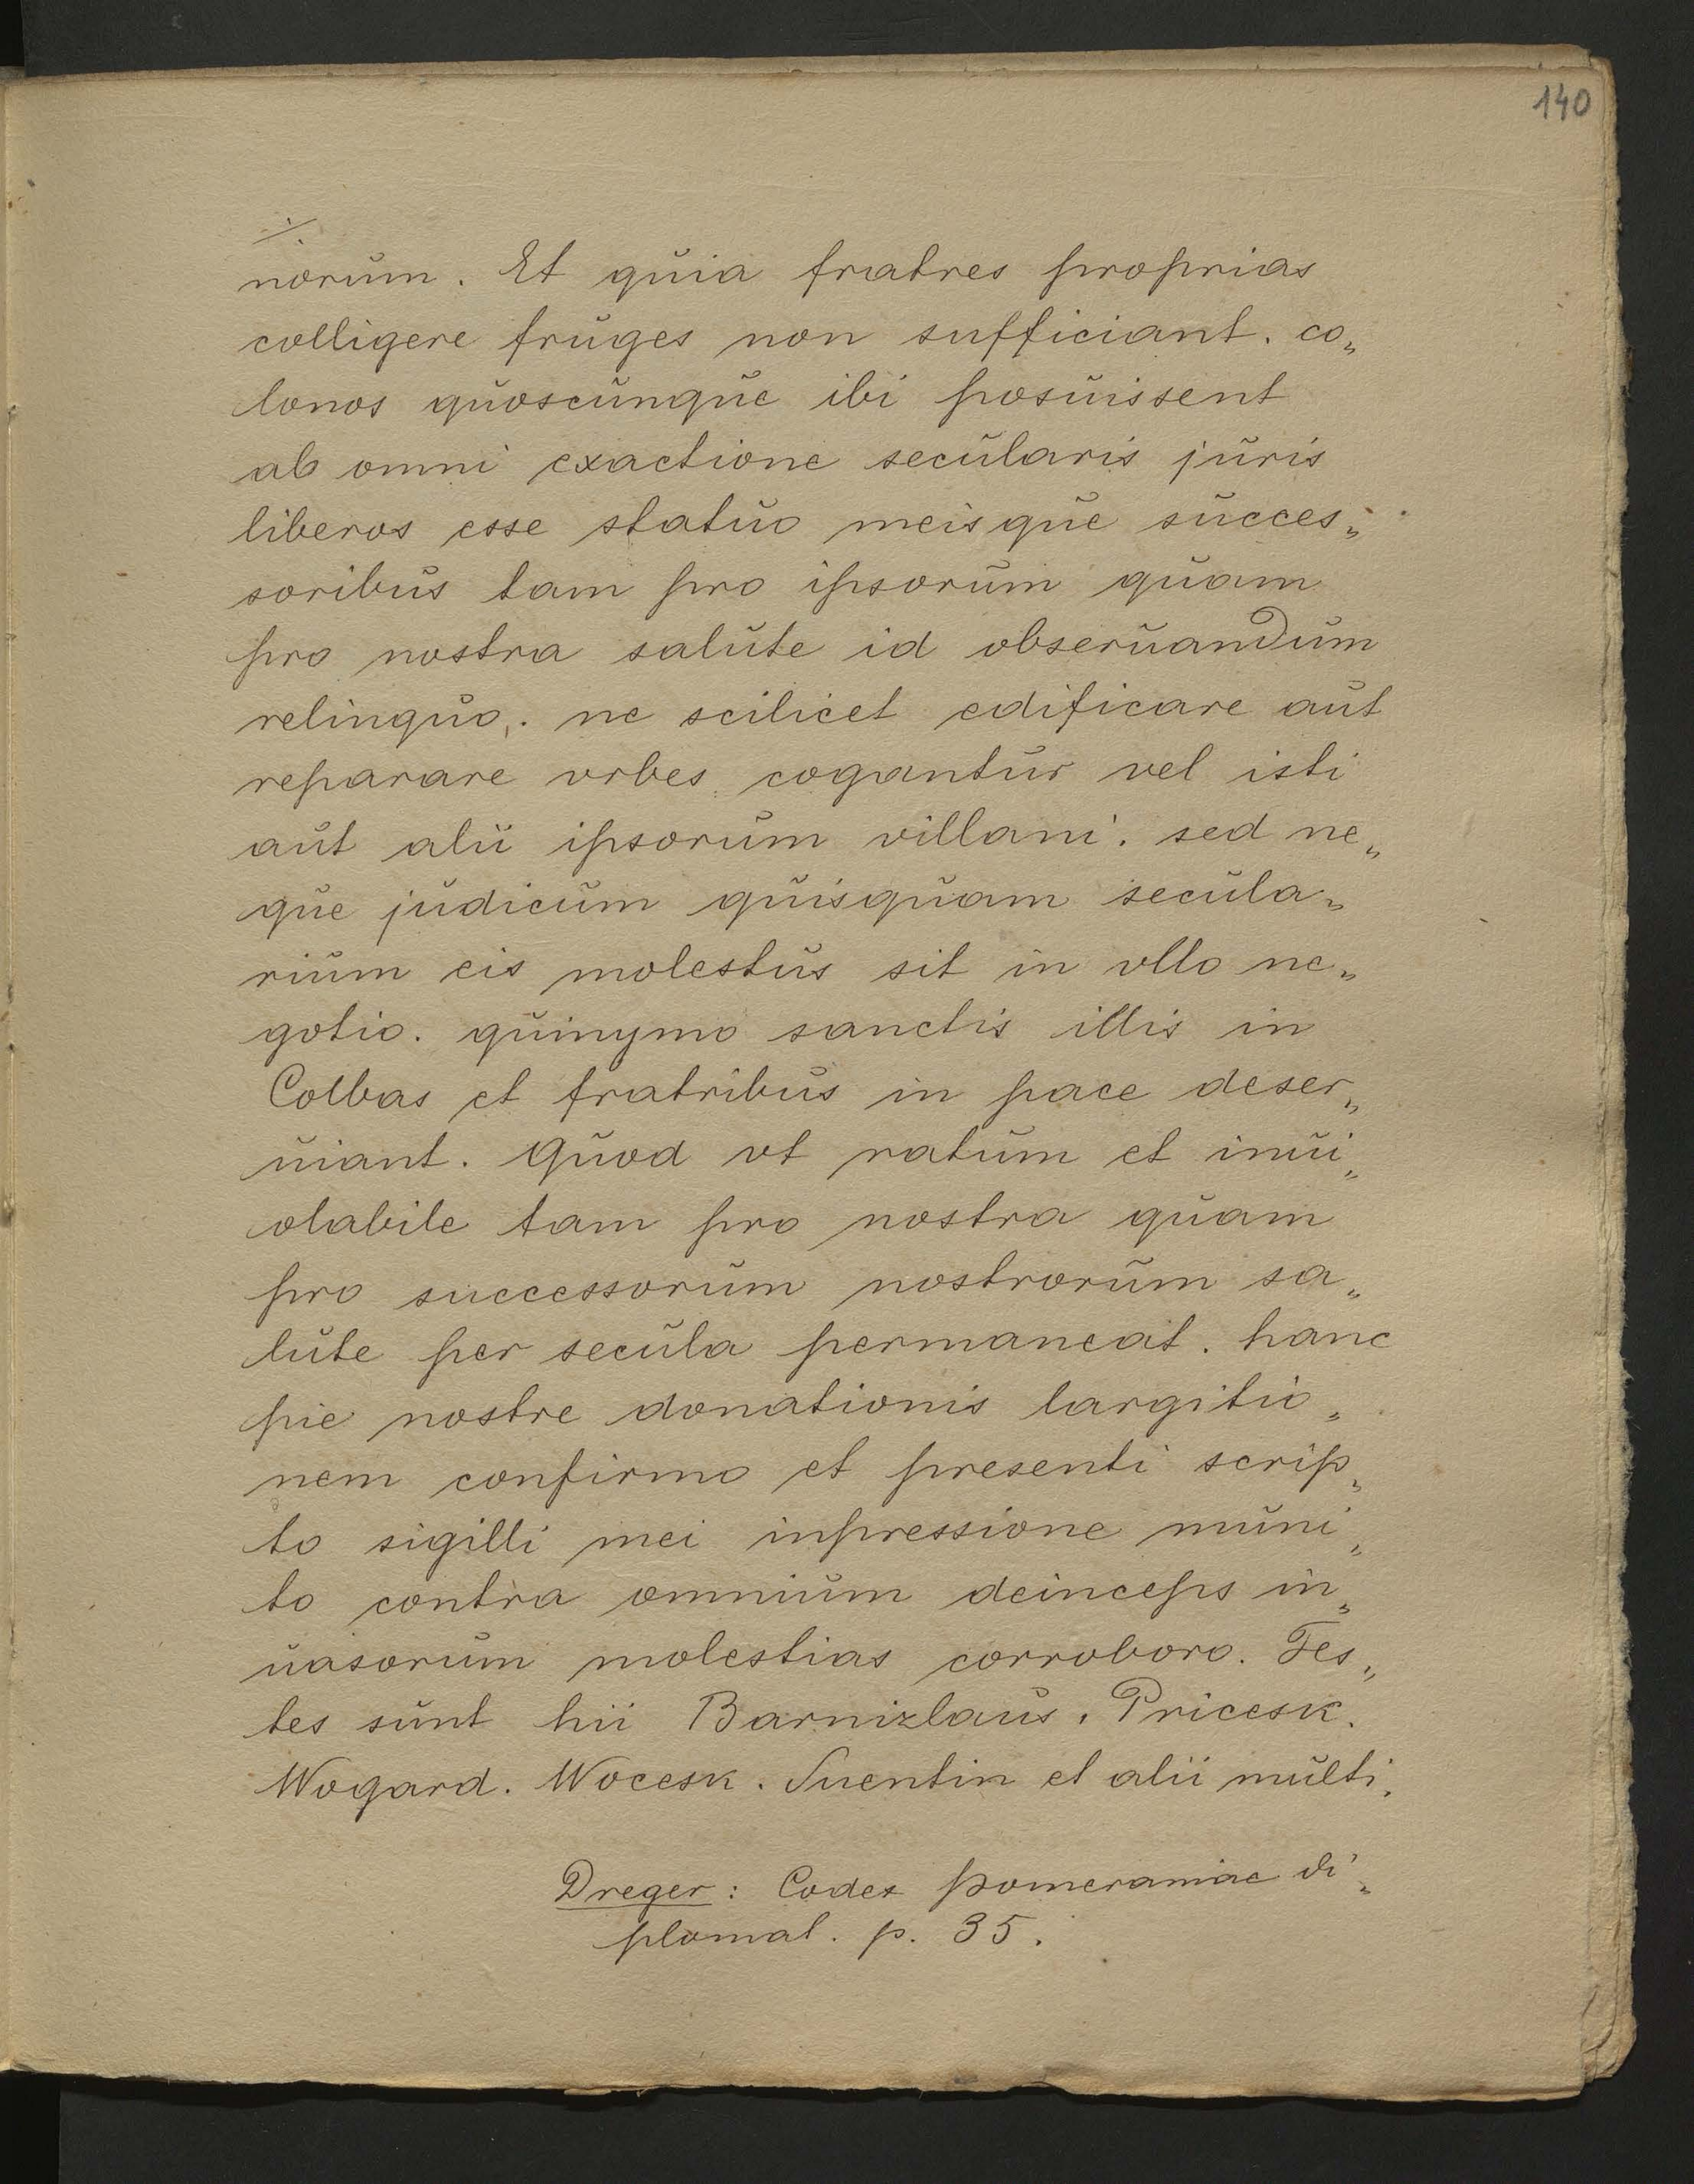 140
./.
norum. Et quia fratres proprias
colligere fruges non sufficiant. co„
lonos quoscunque ibi posuissent
ab omni exactione secularis juris
liberos esse statuo meisque succes„
soribus tam pro ipsorum quam
pro nostra salute id obseruandum
relinquo. ne scilicet edificare aut
reparare vrbes cogantur vel isti
aut alii ipsorum villani. sed ne„
que judicum quisquam secula„
rium eis molestus sit in vllo ne„
gotio. quinymo sanctis illis in
Colbas et fratribus in pace deser„
uiant. Quod vt ratum et inui„
olabile tam pro nostra quam
pro successorum nostrorum sa„
lute per secula permaneat. hanc
pie nostre donationis largitio„
nem confirmo et presenti scrip„
to sigilli mei inpressione muni„
to contra omnium deinceps in„
uasorum molestias corroboro. Tes„
tes sunt hii Barnizlaus. Pricesk.
Wogard. Wocesk. Suentin et alii multi.
Dreger: Codex Pomeraniae di„
plomat. p. 35.